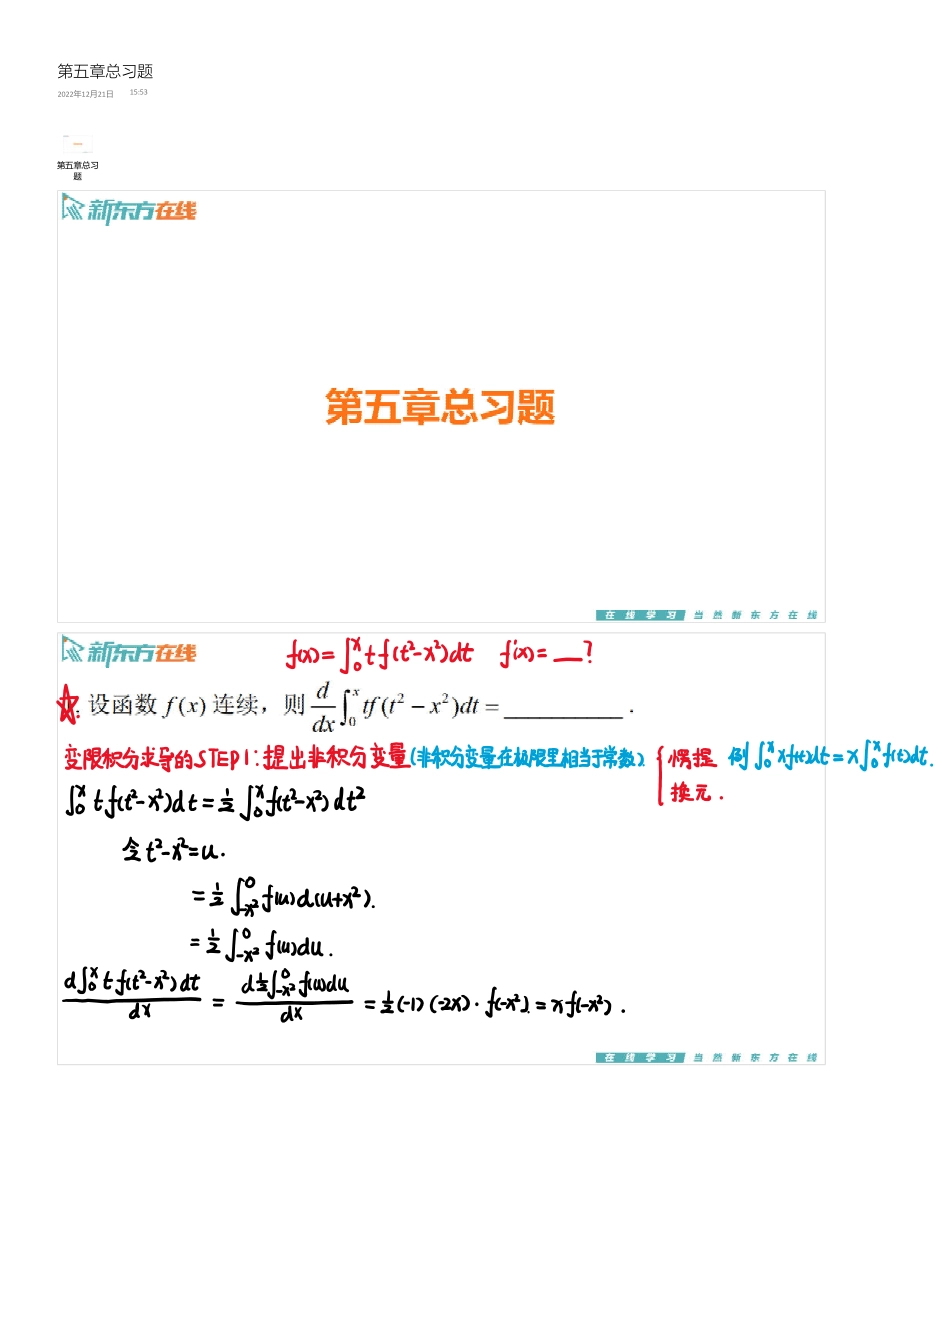 第五章总习题
2022年12月21日 15:53
第五章总习
题
新东方在线
第五章总习题
在线学习 当然新东方在线
新东方在线
f(x)=∫₀ˣtf(t²-x²)dt f'(x)=__?
设函数 f(x) 连续，则 d/dx ∫₀ˣ tf(t² − x²)dt = __________ .
变限积分求导的STEP1:提出非积分变量(非积分变量在极限里相当于常数) { 愣提 例∫₀ˣxf(t)dt=x∫₀ˣf(t)dt.
换元.
∫₀ˣtf(t²-x²)dt=½∫₀ˣf(t²-x²)dt²
令t²-x²=u.
=½∫₋ₓ²⁰f(u)d(u+x²).
=½∫₋ₓ²⁰f(u)du.
d∫₀ˣtf(t²-x²)dt/dx = d½∫₋ₓ²⁰f(u)du/dx =½(-1)(-2x)·f(-x²)=xf(-x²).
在线学习 当然新东方在线